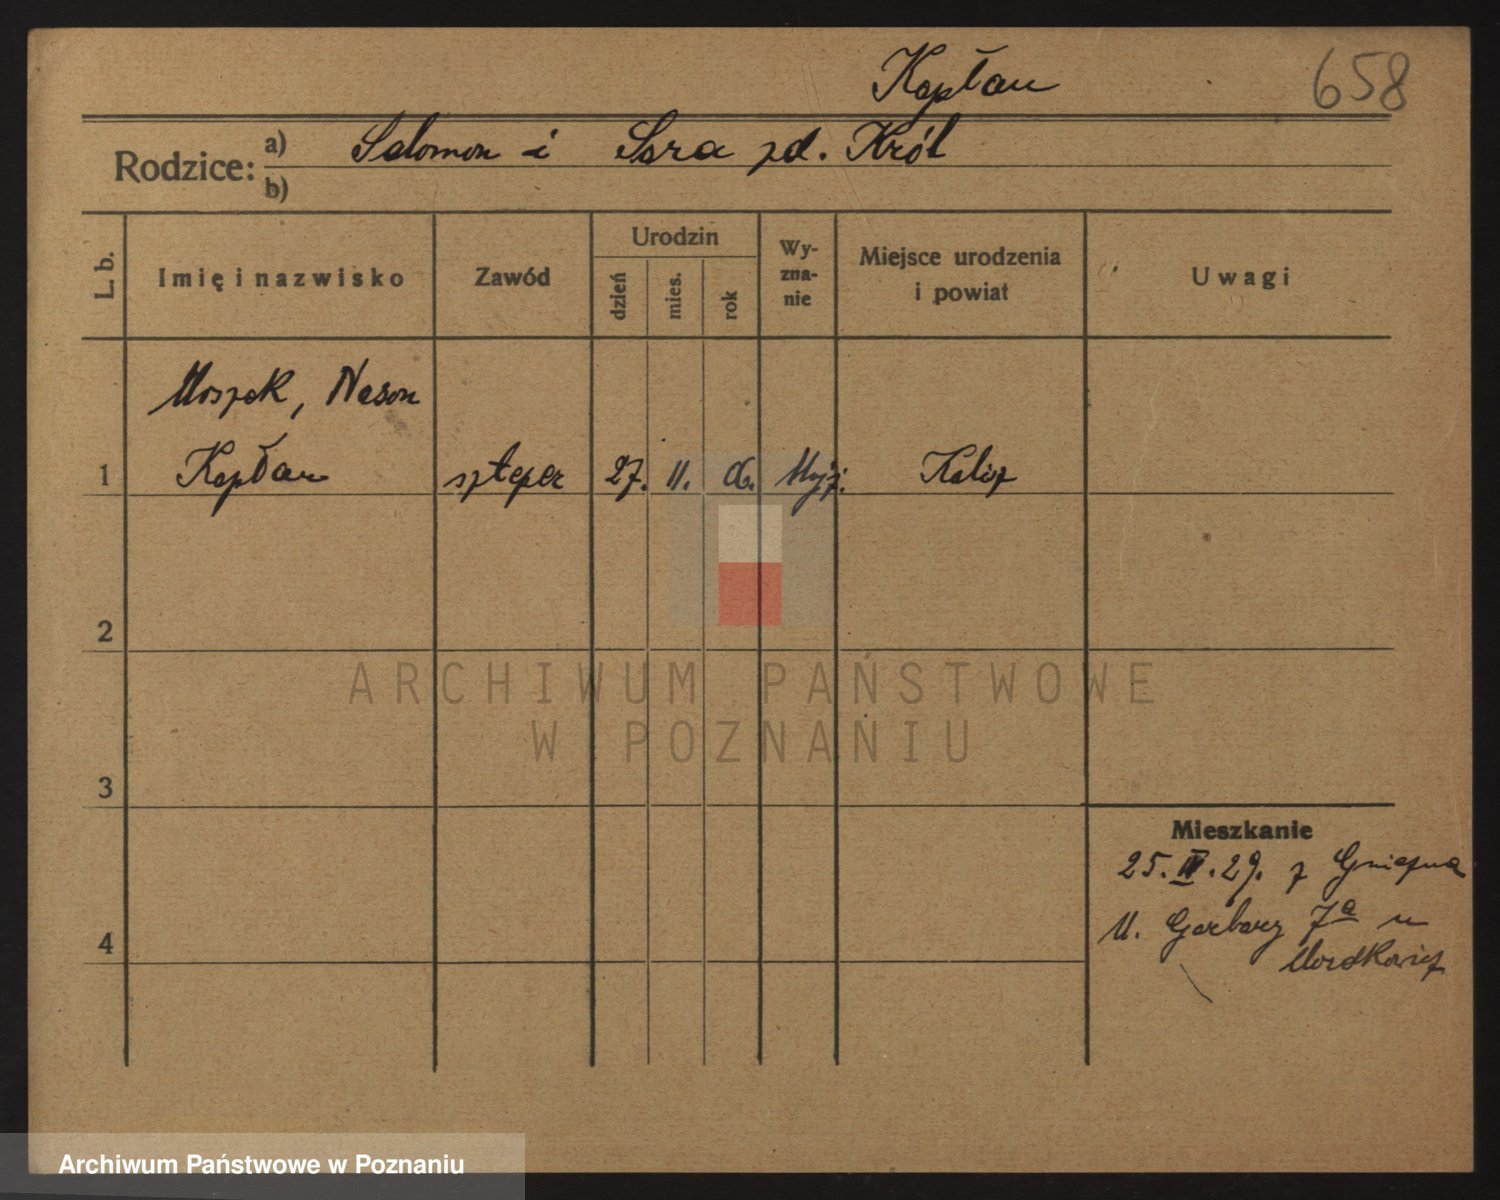 Kapłan
658
Rodzice: a) Salomon i Sara zd. Król
b)
L. b.
Imię i nazwisko
Zawód
Urodzin
dzień
mies.
rok
Wy-
zna-
nie
Miejsce urodzenia
i powiat
Uwagi
Moszek, Nason
1 Kapłan szteper 27. 11. 06. Mojż. Kalisz
2
ARCHIWUM PAŃSTWOWE
W POZNANIU
3
Mieszkanie
25. IV. 29. z Gniezna
M. Garbary 7a u
Mordkowicz
4
Archiwum Państwowe w Poznaniu